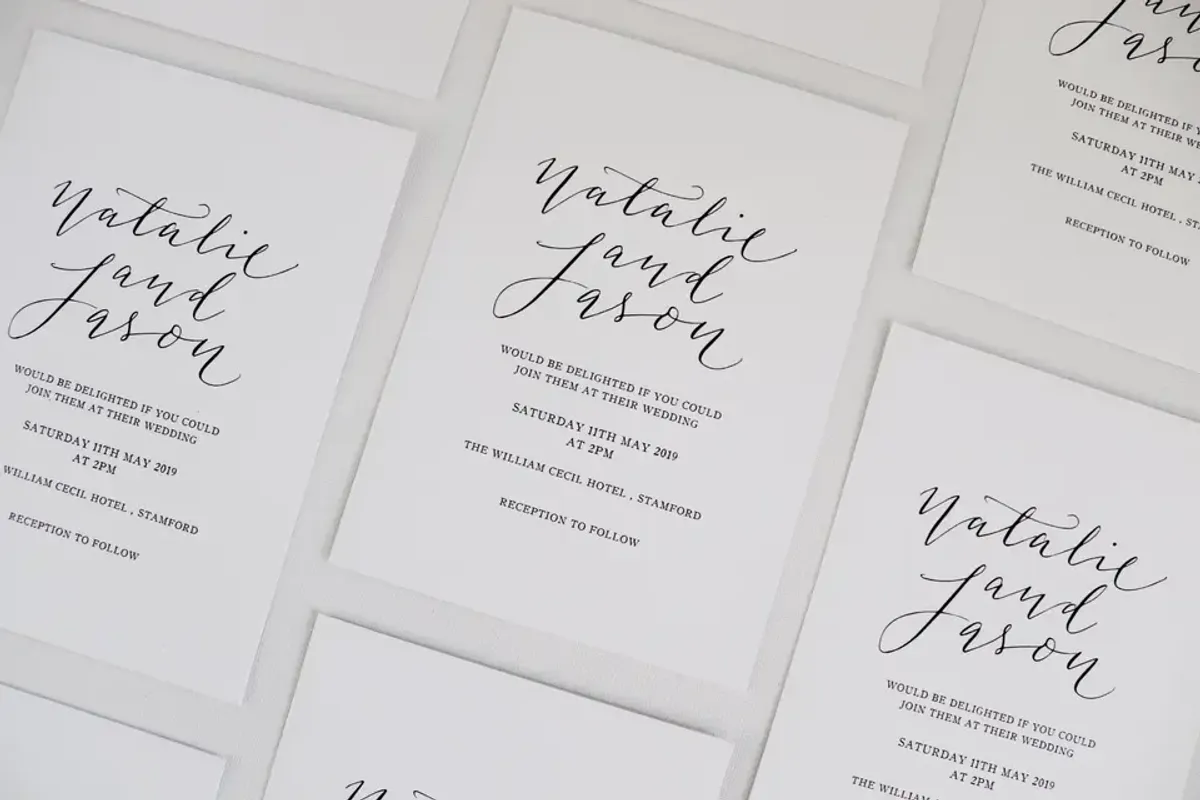 Natalie
and
Jason
WOULD BE DELIGHTED IF YOU COULD
JOIN THEM AT THEIR WEDDING
SATURDAY 11TH MAY 2019
AT 2PM
WILLIAM CECIL HOTEL , STAMFORD
RECEPTION TO FOLLOW
Natalie
and
Jason
WOULD BE DELIGHTED IF YOU COULD
JOIN THEM AT THEIR WEDDING
SATURDAY 11TH MAY 2019
AT 2PM
THE WILLIAM CECIL HOTEL , STAMFORD
RECEPTION TO FOLLOW
WOULD BE DELIGHTED IF
JOIN THEM AT THEIR
SATURDAY 11TH MAY
AT 2PM
THE WILLIAM CECIL HOTEL ,
RECEPTION TO FOLLOW
Natalie
and
Jason
WOULD BE DELIGHTED IF YOU COULD
JOIN THEM AT THEIR WEDDING
SATURDAY 11TH MAY 2019
AT 2PM
THE